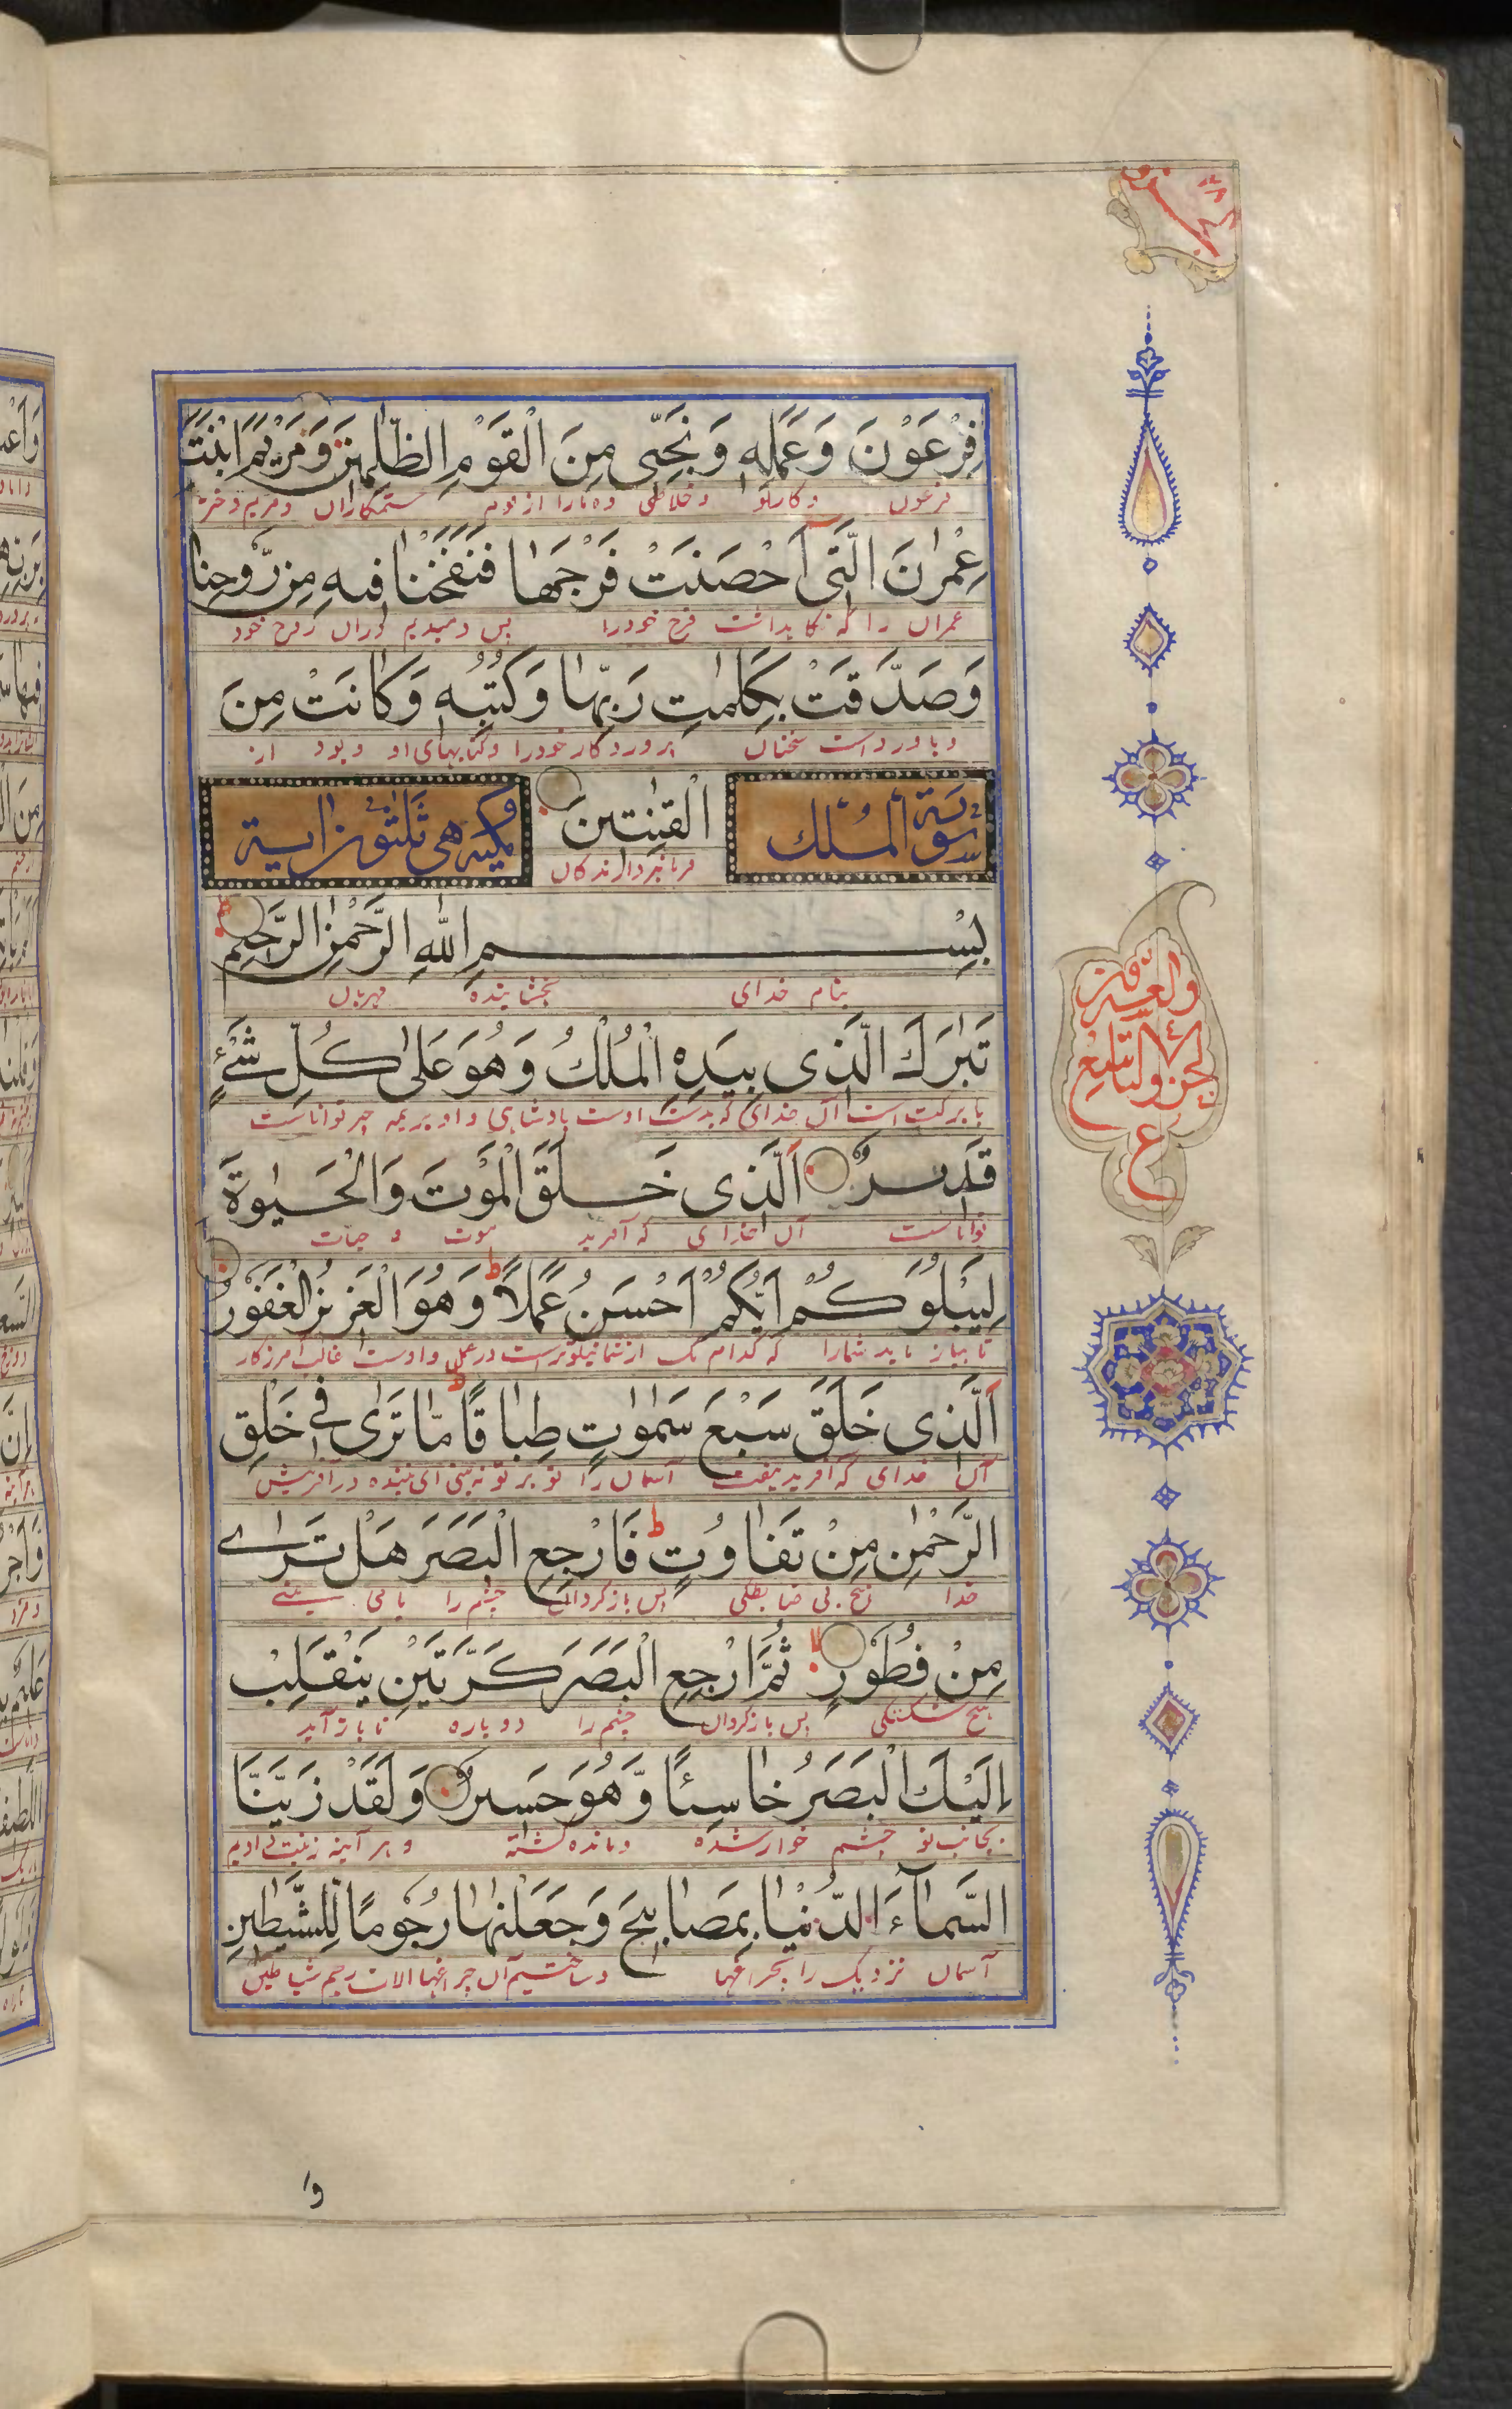 فِرْعَوْنَ وَعَمَلِهٖ وَنَجِّنِی مِنَ الْقَوْمِ الظّٰلِمِیْنَ وَمَرْیَمَ ابْنَتَ
فرعون وکار او وخلاصی ده مارا از قوم ستمکاران ومریم دختر
عِمْرٰنَ الَّتِی اَحْصَنَتْ فَرْجَهَا فَنَفَخْنَا فِیهِ مِنْ رُّوحِنَا
عمران را که نکاهداشت فرج خودرا پس دمیدیم دران روح خود
وَصَدَّقَتْ بِكَلِمٰتِ رَبِّهَا وَكُتُبِهٖ وَكَانَتْ مِنَ
وباور داشت سخنان پروردکار خودرا وکتابهای او وبود از
الْقٰنِتِینَ
فرمانبردارندکان
سورة الملک
مکیة هی ثلثون ایة
بِسْمِ اللّٰهِ الرَّحْمٰنِ الرَّحِیْمِ
بنام خدای بخشاینده مهربان
تَبٰرَكَ الَّذِی بِیَدِهِ الْمُلْكُ وَهُوَ عَلٰی كُلِّ شَیْءٍ
با برکت است آن خدای که بدست اوست بادشاهی و او بر همه چیز تواناست
قَدِیرٌ الَّذِی خَلَقَ الْمَوْتَ وَالْحَیٰوةَ
تواناست آن خدای که آفرید موت و حیات
لِیَبْلُوَكُمْ اَیُّكُمْ اَحْسَنُ عَمَلًا ط وَهُوَ الْعَزِیزُ الْغَفُورُ
تا بیازماید شمارا که کدام یک از شما نیکوترست در عمل واوست غالب آمرزکار
الَّذِی خَلَقَ سَبْعَ سَمٰوٰتٍ طِبَاقًا ط مَّا تَرٰی فِی خَلْقِ
آن خدای که آفرید هفت آسمان را تو بر تو نه بینی ای بیننده در آفرینش
الرَّحْمٰنِ مِنْ تَفَاوُتٍ ط فَارْجِعِ الْبَصَرَ هَلْ تَرٰی
خدا هیچ بی ضابطکی پس بازکردان چشم را یا می بینی
مِنْ فُطُورٍ لا ثُمَّ ارْجِعِ الْبَصَرَ كَرَّتَیْنِ یَنْقَلِبْ
هیچ شکستکی پس بازکردان چشم را دوباره تا باز آید
اِلَیْكَ الْبَصَرُ خَاسِئًا وَّهُوَ حَسِیرٌ وَلَقَدْ زَیَّنَّا
بجانب تو چشم خوار شده ومانده کشته وهر آینه زینت دادیم
السَّمَآءَ الدُّنْیَا بِمَصَابِیحَ وَجَعَلْنٰهَا رُجُومًا لِّلشَّیٰطِینِ
آسمان نزدیک را بچراغها وساختیم آن چراغها الات رجم شیاطین
والعشرون
الجزء التاسع
ع
وا